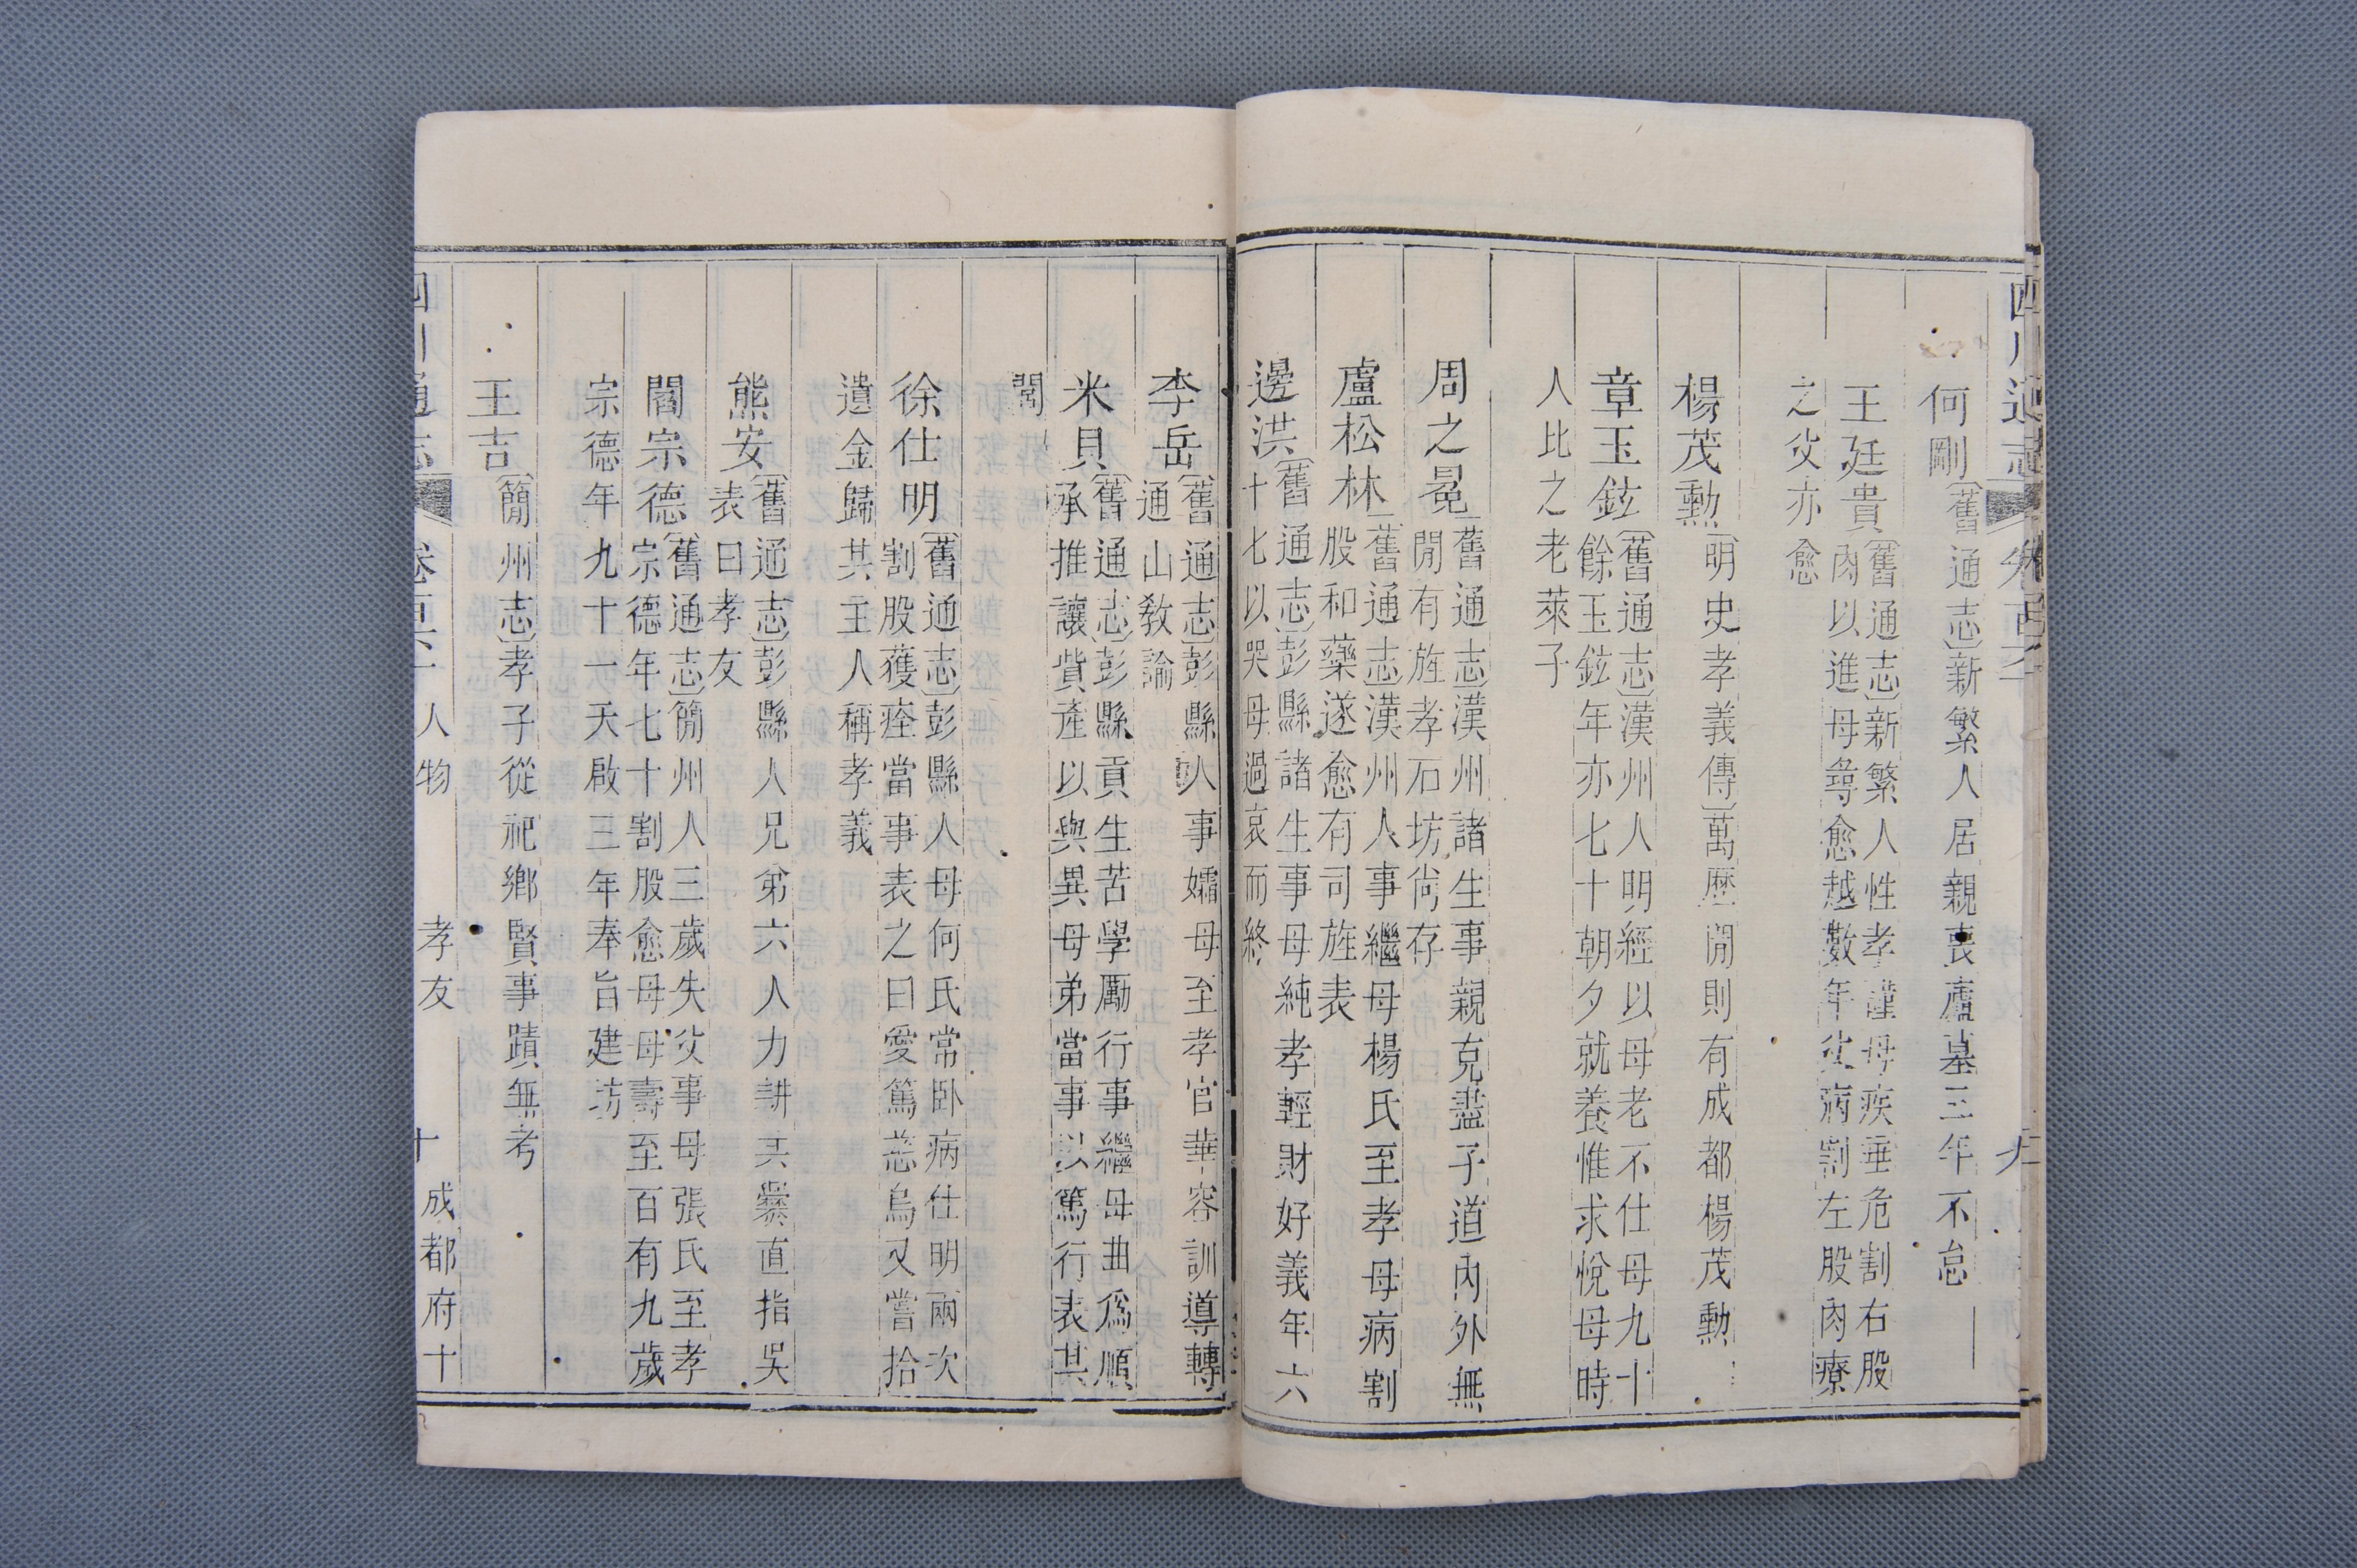 四川通志
何剛〔舊通志〕新繁人居親喪廬墓三年不怠
王廷貴〔舊通志〕新繁人性孝謹母疾垂危割右股
肉以進母尋愈越數年父病割左股肉療
之父亦愈
楊茂勲〔明史孝義傳〕萬歷閒則有成都楊茂勲
章玉鉉〔舊通志〕漢州人明經以母老不仕母九十
餘玉鉉年亦七十朝夕就養惟求悅母時
人比之老萊子
周之冕〔舊通志〕漢州諸生事親克盡子道內外無
閒有旌孝石坊尙存
盧松林〔舊通志〕漢州人事繼母楊氏至孝母病割
股和藥遂愈有司旌表
邊洪〔舊通志〕彭縣諸生事母純孝輕財好義年六
十七以哭母過哀而終
李岳〔舊通志〕彭縣人事孀母至孝官華容訓導轉
通山敎諭
米貝〔舊通志〕彭縣貢生苦學勵行事繼母曲爲順
承推讓貲產以與異母弟當事以篤行表其
閭
徐仕明〔舊通志〕彭縣人母何氏常卧病仕明兩次
割股獲痊當事表之曰愛篤慈烏又嘗拾
遺金歸其主人稱孝義
熊安〔舊通志〕彭縣人兄弟六人力耕共爨直指吳
表曰孝友
閻宗德〔舊通志〕簡州人三歲失父事母張氏至孝
宗德年七十割股愈母母壽至百有九歲
宗德年九十一天啟三年奉旨建坊
王吉〔簡州志〕孝子從祀鄉賢事蹟無考
四川通志 卷百 人物 孝友 十 成都府十